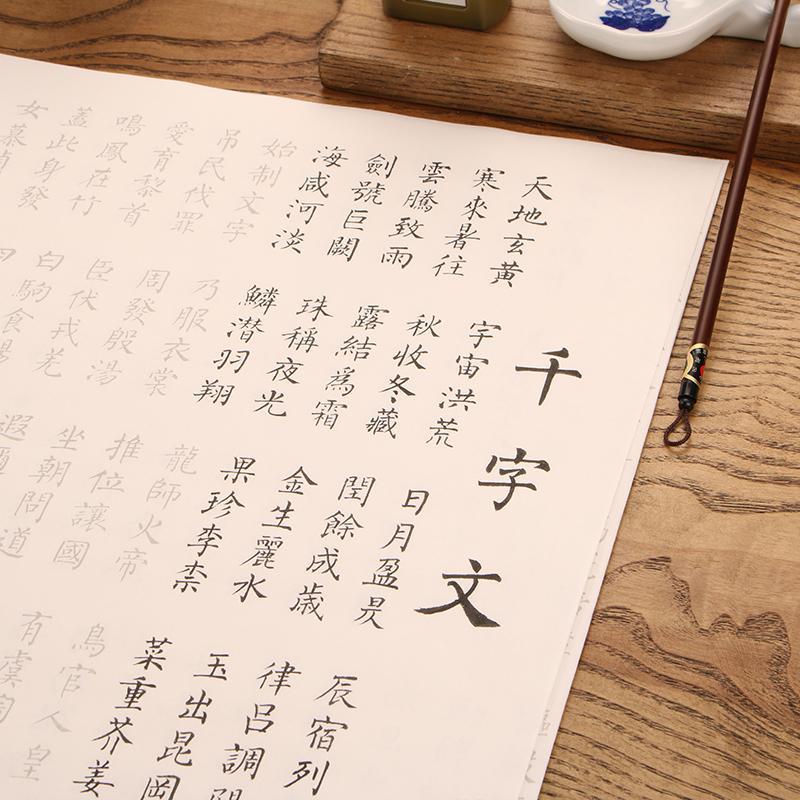 千字文
天地玄黃 宇宙洪荒 日月盈昃 辰宿列
寒來暑往 秋收冬藏 閏餘成歲 律呂調
雲騰致雨 露結爲霜 金生麗水 玉出昆岡
劍號巨闕 珠稱夜光 果珍李柰 菜重芥姜
海咸河淡 鱗潜羽翔 龍師火帝 鳥官人皇
始制文字 乃服衣裳 推位讓國 有虞陶
吊民伐罪 周發殷湯 坐朝問道
愛育黎首 臣伏戎羌 遐邇
鳴鳳在竹 白駒食場
蓋此身發
女慕